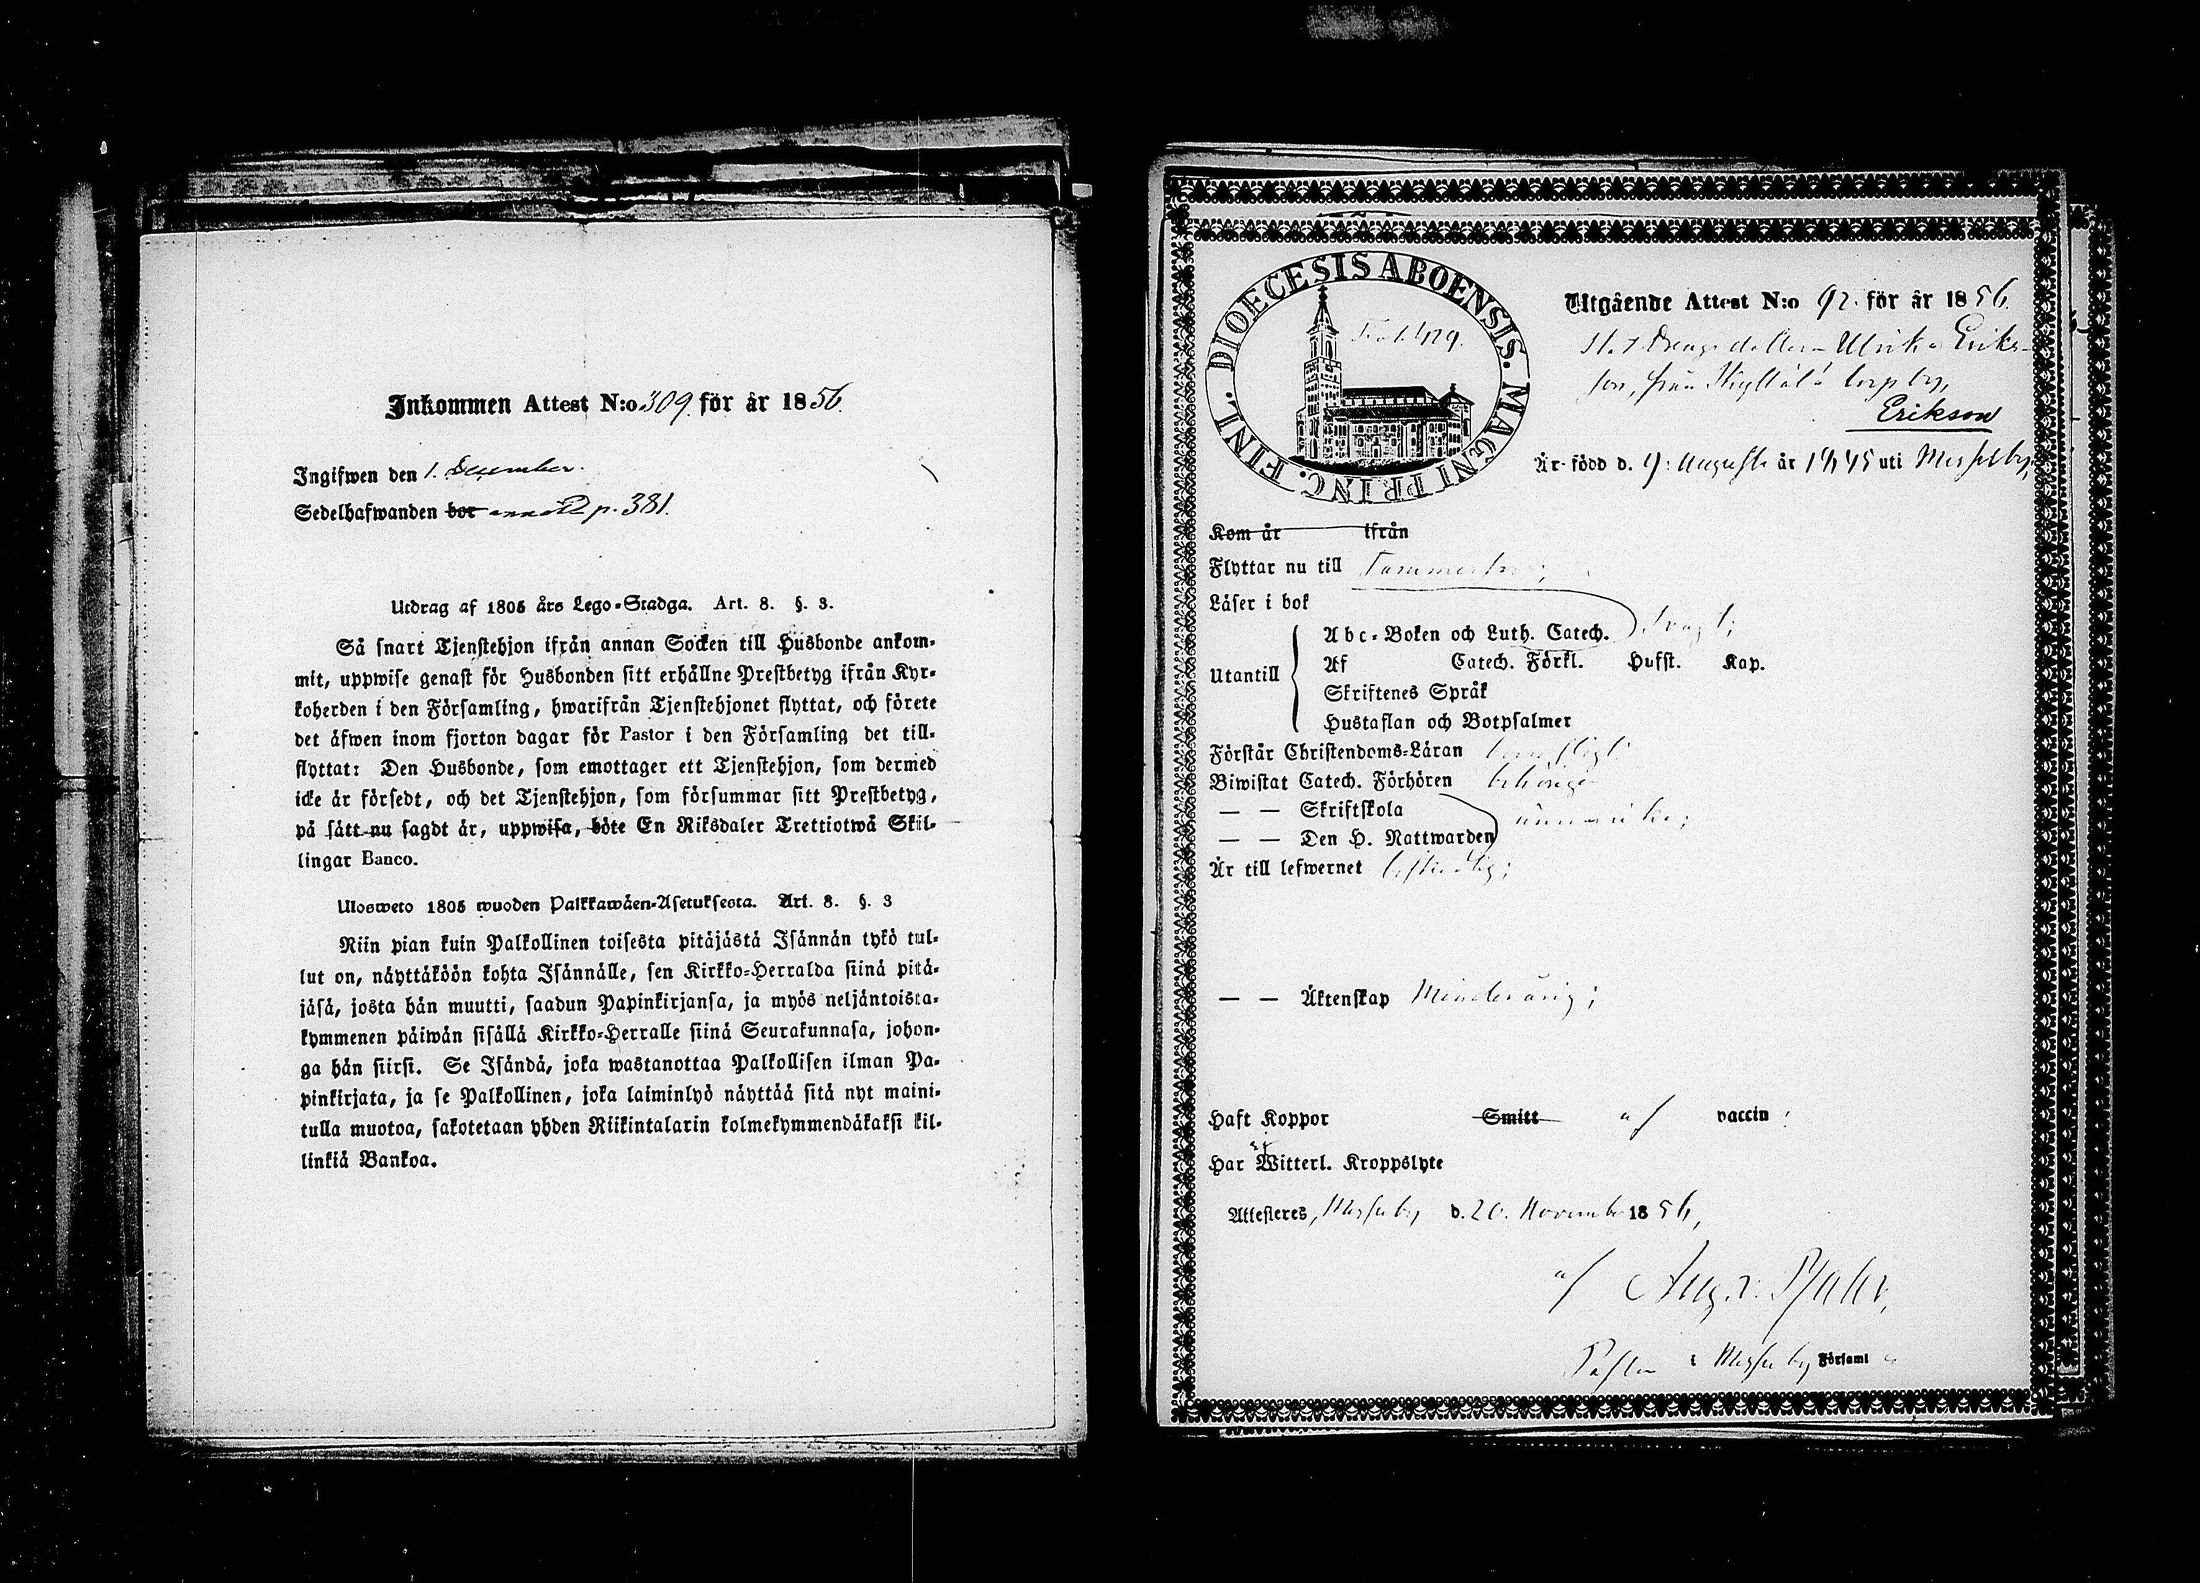 Inkommen Attest N:o 309. för år 1856.
Ingifwen den 1. December.
Sedelhafwanden bor p. 381.
Utdrag af 1805 års Lego-Stadga. Art. 8. §. 3.
Så snart Tjenstehjon ifrån annan Socken till Husbonde ankom-
mit, uppwise genast för Husbonden sitt erhållne Prestbetyg ifrån Kyr-
koherden i den Församling, hwarifrån Tjenstehjonet flyttat, och förete
det äfwen inom fjorton dagar för Pastor i den Församling det till-
flyttat: Den Husbonde, som emottager ett Tjenstehjon, som dermed
icke är försedt, och det Tjenstehjon, som försummar sitt Prestbetyg,
på sätt nu sagdt är, uppwisa, böte En Riksdaler Trettiotwå Skil-
lingar Banco.
Uloswето 1805 wuoden Palkkawäen-Asetuksesta. Art. 8. §. 3
Niin pian kuin Palkollinen toisesta pitäjästä Isännän tykö tul-
lut on, näyttäköön kohta Isännälle, sen Kirkko-Herralda siinä pitä-
jäsä, josta hän muutti, saadun Papinkirjansa, ja myös neljäntoista-
kymmenen päiwän sisällä Kirkko-Herralle siinä Seurakunnasa, johon-
ga hän siirsi. Se Isändä, joka wastanottaa Palkollisen ilman Pa-
pinkirjata, ja se Palkollinen, joka laiminlyö näyttää sitä nyt maini-
tulla muotoa, sakotetaan yhden Riikintalarin kolmekymmendäkaksi kil-
linkiä Bankoa.
DIOECESIS ABOENSIS. MAGNI PRINC. FINL.
Fol. 429.
Utgående Attest N:o 92. för år 1856.
Ulrika Eriks-
son, från
Erikson
Är född d. 9. Augusti år 1845 uti
Kom år ifrån
Flyttar nu till Tammerfors;
Läser i bok
Utantill
Abc-Boken och Luth. Catech. svagt;
Af Catech. Förkl. Hufst. Kap.
Skriftenes Språk
Hustaflan och Botpsalmer
Förstår Christendoms-Läran
Biwistat Catech. Förhören
— — Skriftskola
— — Den H. Nattwarden
Är till lefwernet
— — Äktenskap Minderårig;
Haft Koppor Smitt af vaccin;
Har Witterl. Kroppslyte
Attesteres, d. 20. November 1856,
af Aug.
Pastor i Församl